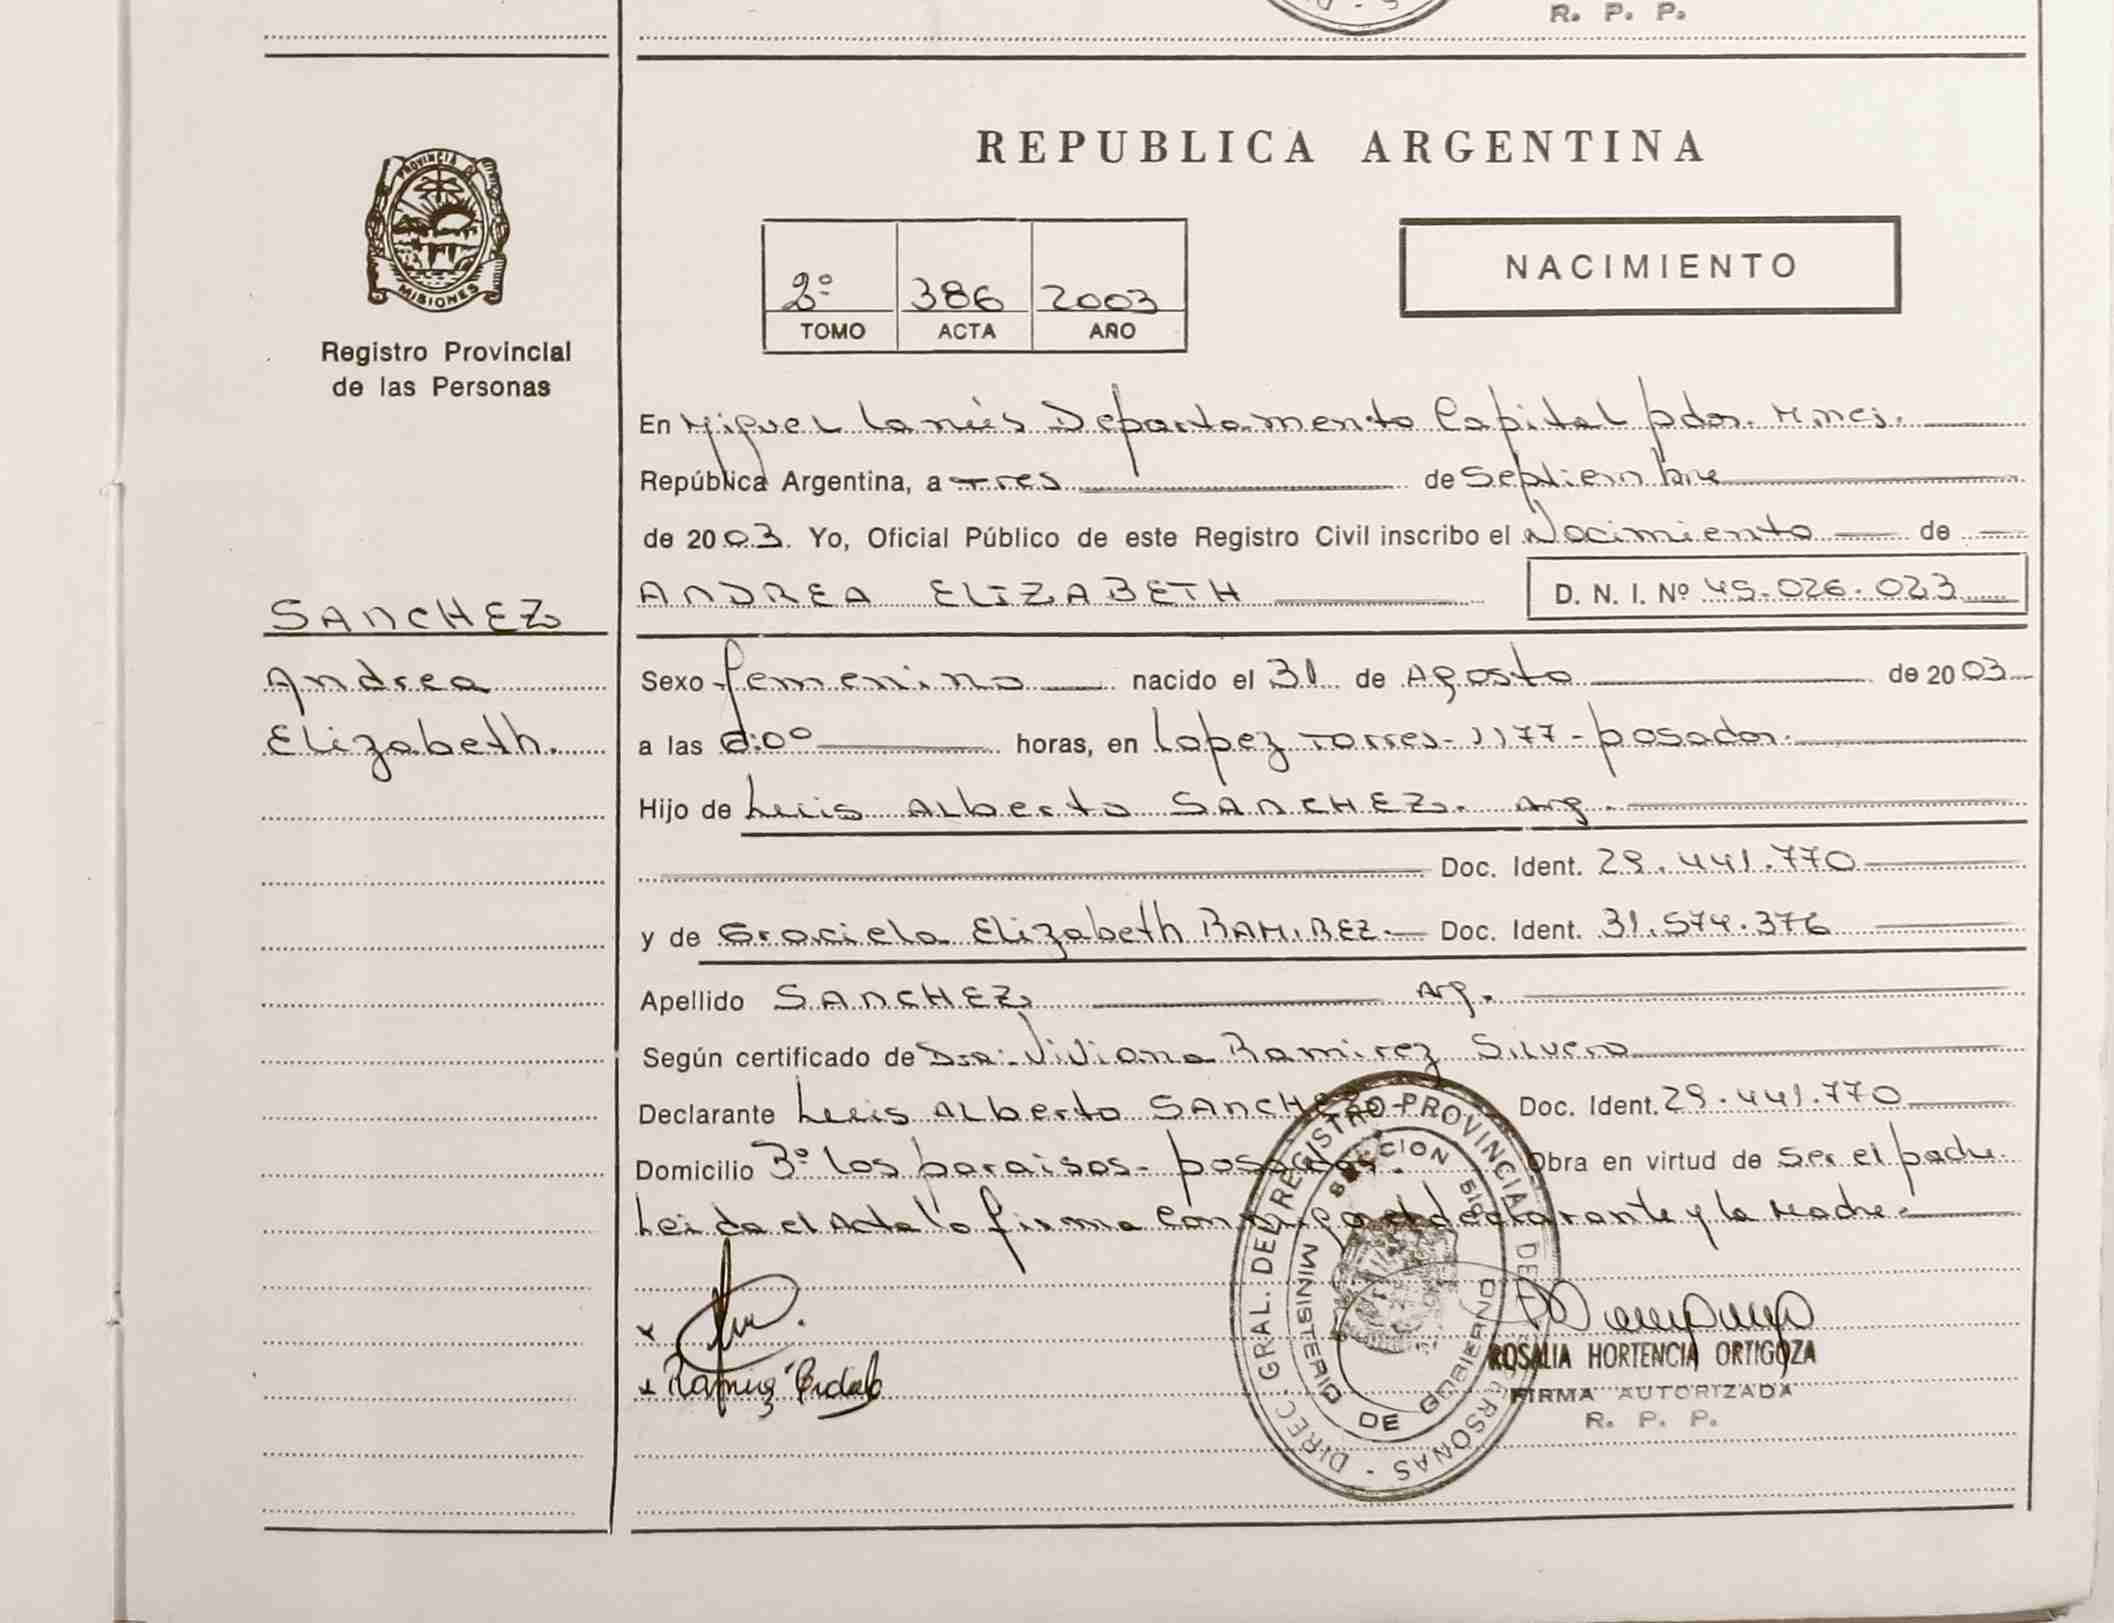 R. P. P.
PROVINCIA DE
MISIONES
Registro Provincial
de las Personas
SANCHEZ
Andrea
Elizabeth.
REPUBLICA ARGENTINA
2º 386 2003
TOMO ACTA AÑO
NACIMIENTO
En Miguel Lanús Departamento Capital pdas. Mnes.
República Argentina, a tres de Septiembre
de 2003. Yo, Oficial Público de este Registro Civil inscribo el Nacimiento de
ANDREA ELIZABETH D. N. I. Nº 45.026.023
Sexo femenino nacido el 31 de Agosto de 2003
a las horas, en Lopez Torres-1177-posadas.
Hijo de Luis Alberto SANCHEZ. Arg.
Doc. Ident. 29.441.770
y de Graciela Elizabeth RAMIREZ. Doc. Ident. 31.574.376
Apellido SANCHEZ Arg.
Según certificado de Dra: Viviana Ramirez Silvero
Declarante Luis Alberto SANCHEZ Doc. Ident. 29.441.770
Domicilio 3º los paraisos- posadas. Obra en virtud de ser el padre.
Leida el Acta la firma conmigo el declarante y la Madre.
DIREC. GRAL. DEL REGISTRO PROVINCIAL DE LAS PERSONAS
MINISTERIO DE GOBIERNO
ROSALIA HORTENCIA ORTIGOZA
FIRMA AUTORIZADA
R. P. P.